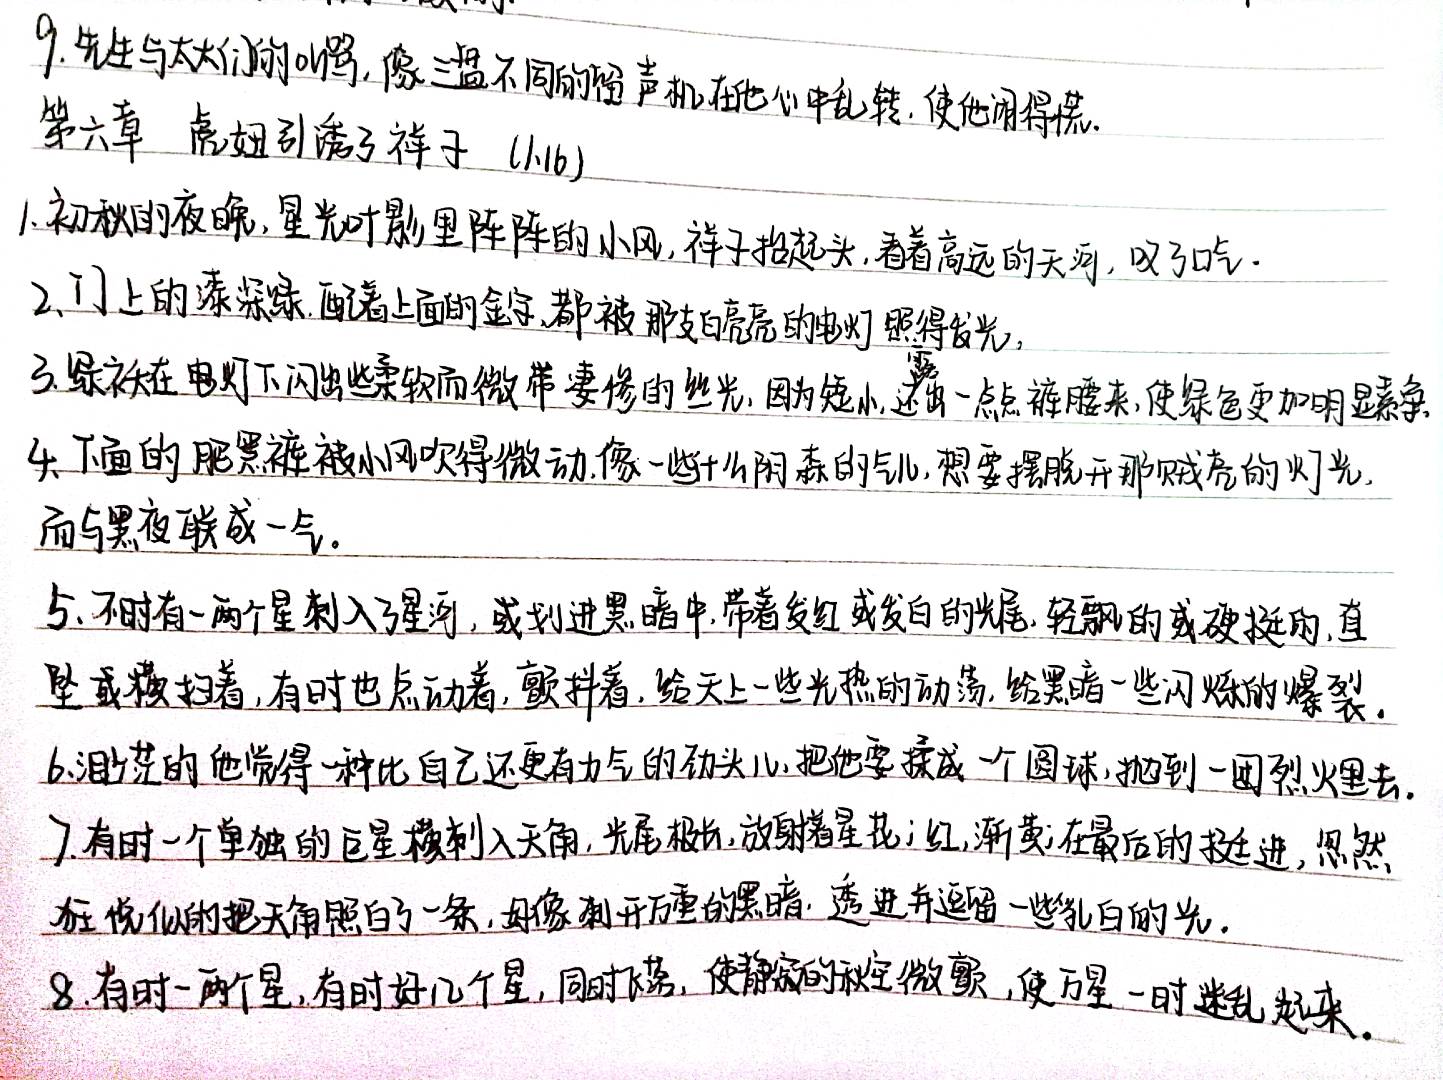 9.先生与太太们的叫骂,像三盘不同的留声机在他心中乱转,使他闹得慌.
第六章 虎妞引诱了祥子 (1.16)
1.初秋的夜晚,星光叶影里阵阵的小风,祥子抬起头,看着高远的天河,叹了口气.
2、门上的漆深绿,配着上面的金字,都被那支白亮亮的电灯照得发光,
3.绿袄在电灯下闪出些柔软而微带凄惨的丝光,因为短小,还露出一点点裤腰来,使绿色更加明显素净.
4.下面的肥黑裤被小风吹得微动,像一些什么阴森的气儿,想要摆脱开那贼亮的灯光,
而与黑夜联成一气.
5、不时有一两个星刺入了星河,或划进黑暗中,带着发红或发白的光尾,轻飘的或硬挺的,直
坠或横扫着,有时也点动着,颤抖着,给天上一些光热的动荡,给黑暗一些闪烁的爆裂.
6.渺茫的他觉得一种比自己还更有力气的劲头儿,把他要揉成一个圆球,抛到一团烈火里去.
7.有时一个单独的巨星横刺入天角,光尾极长,放射着星花;红,渐黄;在最后的挺进,忽然
狂悦似的把天角照白了一条,好像刺开万重的黑暗,透进并逗留一些乳白的光.
8.有时一两个星,有时好几个星,同时飞落,使静寂的秋空微颤,使万星一时迷乱起来.